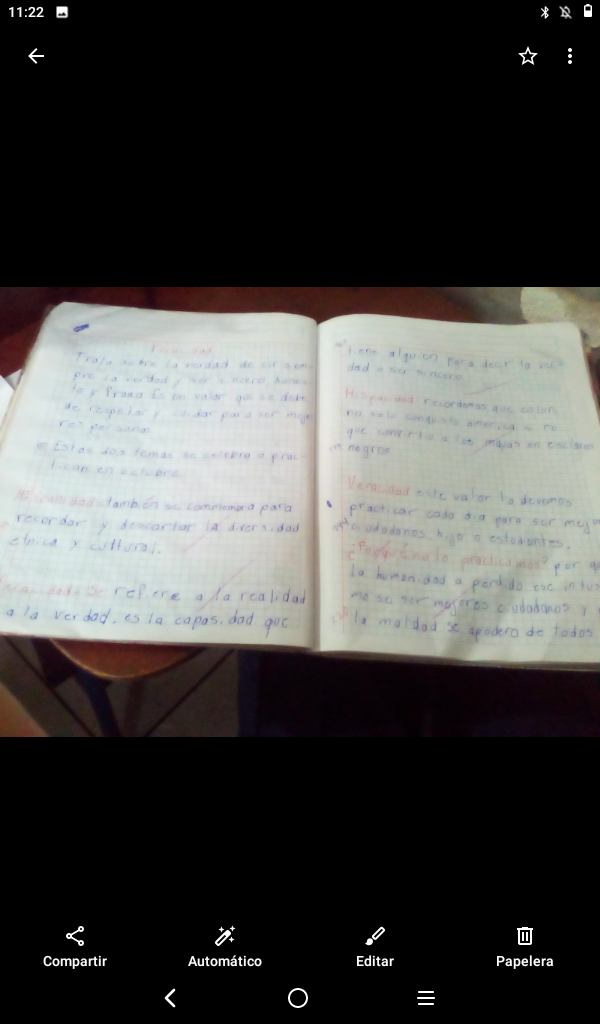 11:22
Veracidad
Trata sobre la verdad de ser siem-
pre la verdad y ser sincero hones-
to y Es un valor que se debe
de respetar y cuidar para ser mejo
res personas
Estas dos temas se celebra o prac-
tican en octubre
Hispanidad también se conmemora para
recordar y descartar la diversidad
etnica y cultural.
Veracidad: Se refiere a la realidad
a la verdad. es la capasidad que
tiene alguien para decir la ver-
dad o ser sincero
Hispanidad recordemos que colon
no solo conquisto america si no
que convirtio a los mayas en esclavos
negros
Veracidad este valor lo devemos
practicar cada dia para ser mejor
ciudadanos hijo o estudiantes.
¿Por qué no lo practicamos? por que
la humanidad a perdido ese
mo se ser mejores ciudadanos y
la maldad se apodero de todos
Compartir
Automático
Editar
Papelera